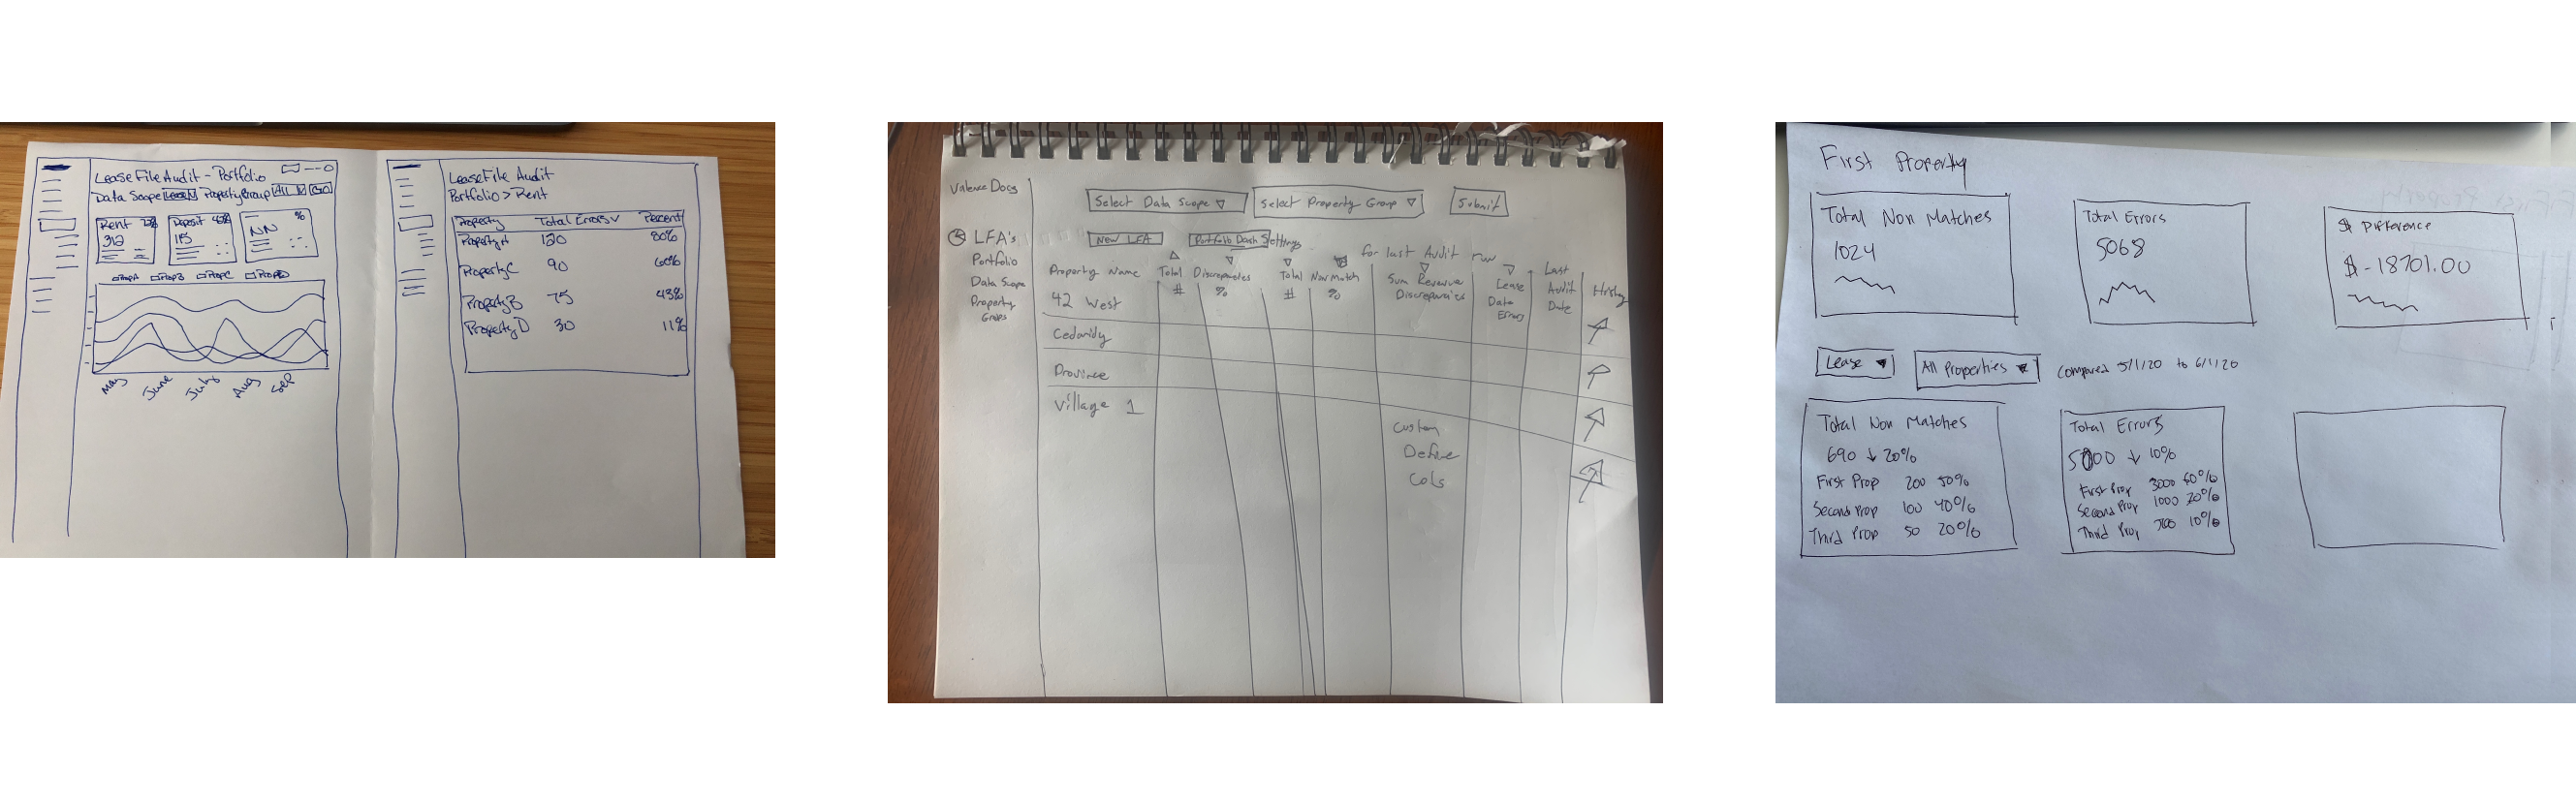 Lease File Audit - Portfolio
Data Scope Lease V Property Group All V Go
Rent
312
Deposit 40%
115
NN
%
PropA PropB PropC PropD
May June July Aug Sep
Lease File Audit
Portfolio > Rent
Property Total Errors V Percent
Property A 120 80%
Property C 90 60%
Property B 75 43%
Property D 30 11%
Valence Docs
LFA's
Portfolio
Data Scope
Property
Groups
Select Data Scope
Select Property Group
Submit
New LFA
Portfolio Dash Settings
for last Audit run
Property Name
Total
#
Discrepancies
%
Total
#
Non Match
%
Sum Revenue
Discrepancies
Lease
Data
Errors
Last
Audit
Date
History
42 West
Cedaridy
Province
Village 1
Custom
Define
Cols
First Property
Total Non Matches
1024
Total Errors
5068
$ Difference
$-18701.00
Lease
All Properties
compared 5/1/20 to 6/1/20
Total Non Matches
690 ↓ 20%
First Prop 200 50%
Second Prop 100 40%
Third Prop 50 20%
Total Errors
5000 ↓ 10%
First Prop 3000 60%
Second Prop 1000 20%
Third Prop 10%